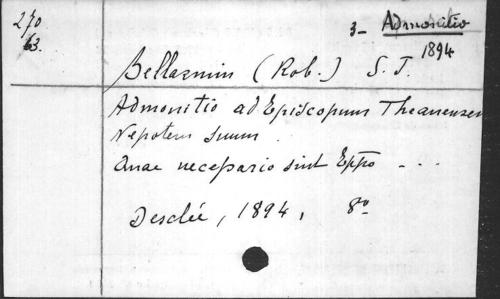 270
63.
3- Admonitio
1894
Bellarmin (Rob.) S. J.
Admonitio ad Episcopum Theanensem
Nepotem suum.
Quae necessario sint Eppo ...
Desclée, 1894, 8º